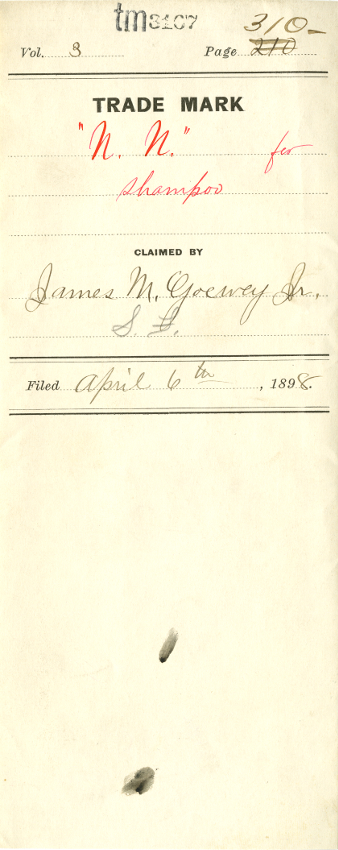 tm3107
310-
Vol. 3 Page 210
TRADE MARK
"N. N." for
shampoo
CLAIMED BY
James M. Goewey Jr.
S. F.
Filed April 6th, 1898.